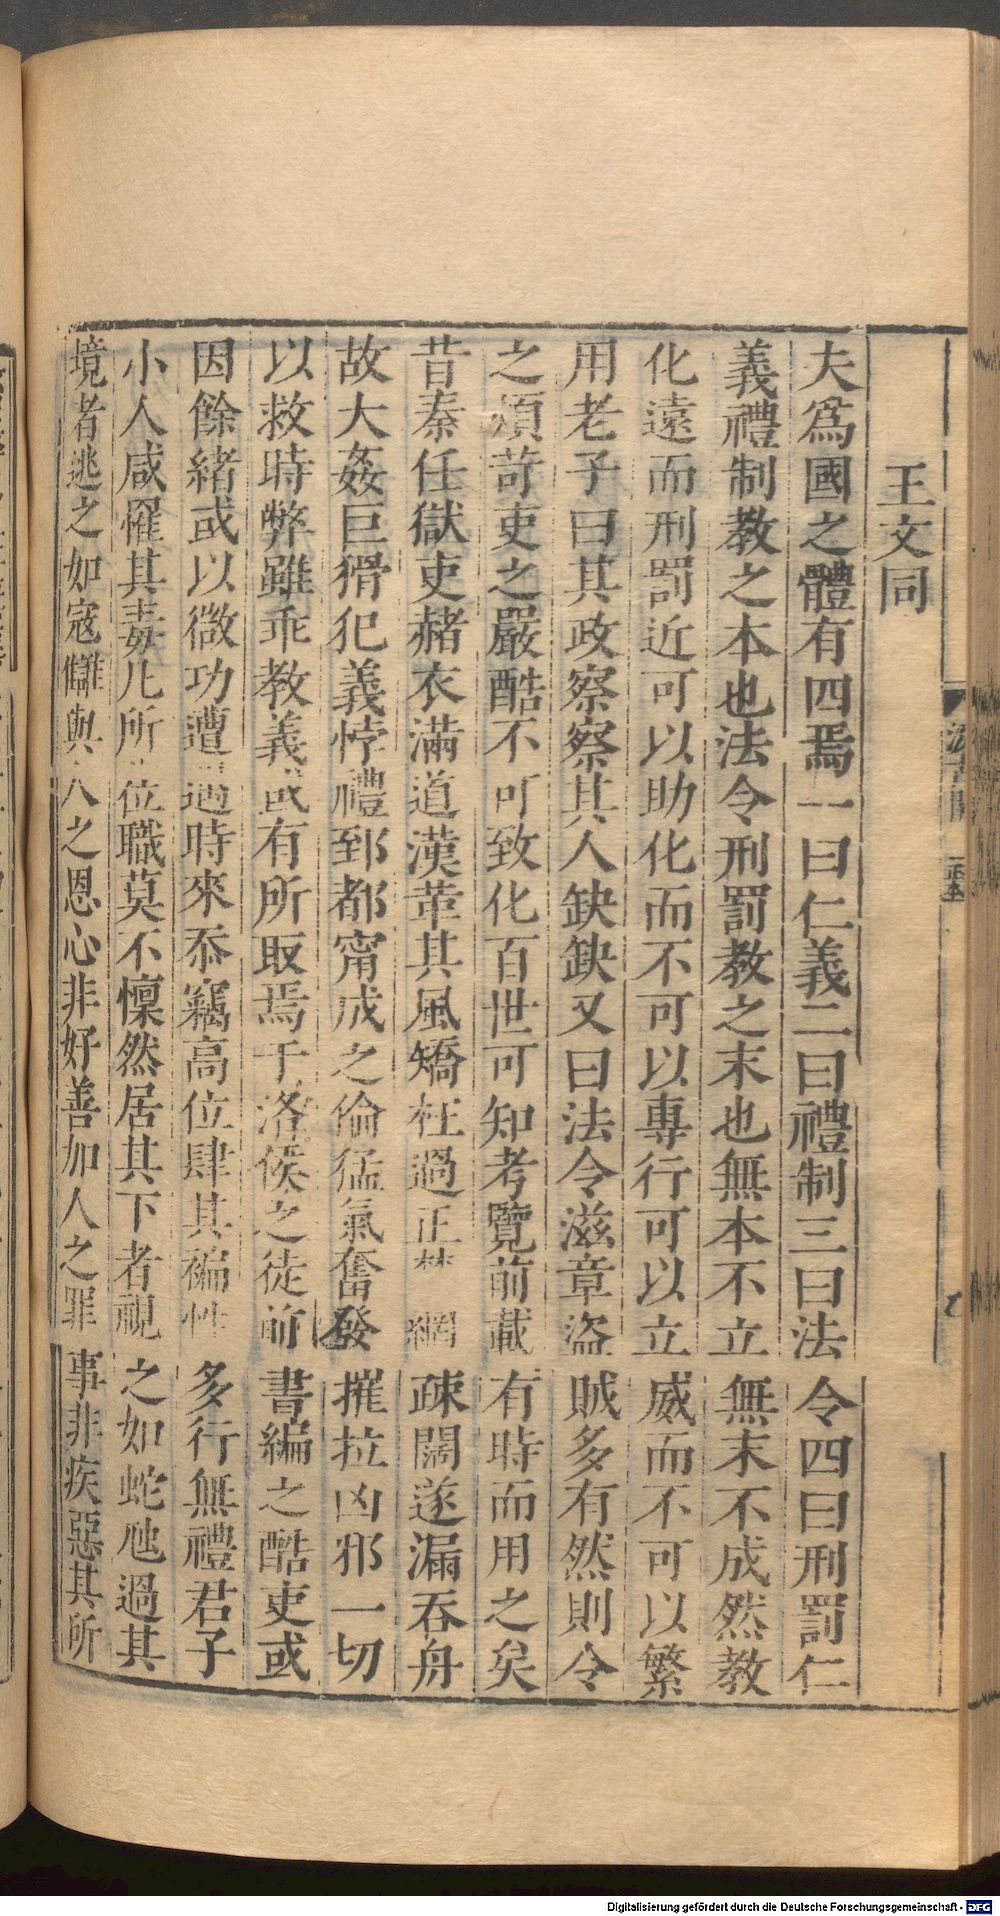 王文同
夫爲國之體有四焉一曰仁義二曰禮制三曰法令四曰刑罰仁
義禮制教之本也法令刑罰教之末也無本不立無末不成然教
化遠而刑罰近可以助化而不可以專行可以立威而不可以繁
用老子曰其政察察其人缺缺又曰法令滋章盜賊多有然則令
之煩苛吏之嚴酷不可致化百世可知考覽前載有時而用之矣
昔秦任獄吏赭衣滿道漢革其風矯枉過正 網疎闊遂漏吞舟
故大姦巨猾犯義悖禮郅都甯成之倫猛氣奮發摧拉凶邪一切
以救時弊雖乖教義或有所取焉于洛侯之徒前書編之酷吏或
因餘緒或以微功遭遇時來忝竊高位肆其褊性多行無禮君子
小人咸罹其毒凡所 位職莫不懍然居其下者視之如蛇虺過其
境者逃之如寇讎與人之恩心非好善加人之罪事非疾惡其所
Digitalisierung gefördert durch die Deutsche Forschungsgemeinschaft - DFG